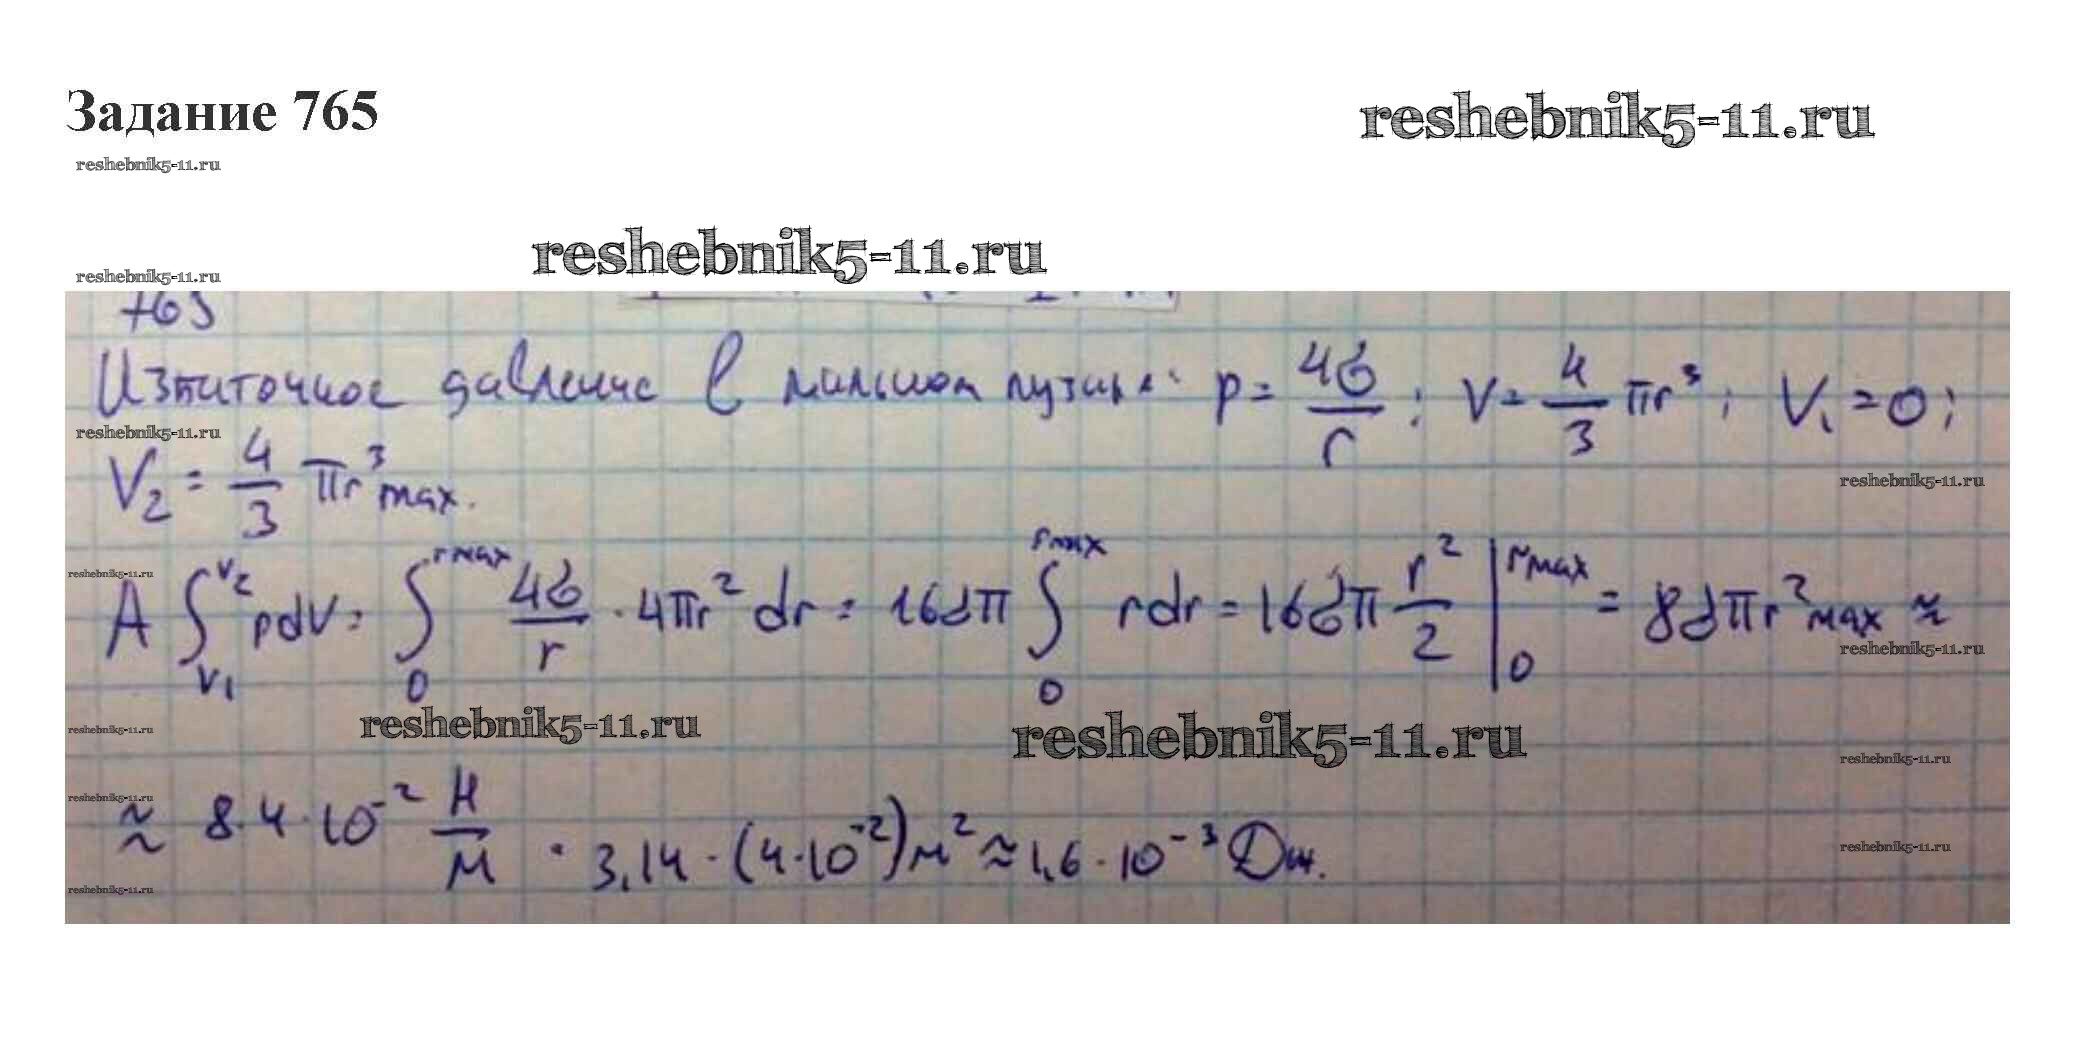 Задание 765
reshebnik5-11.ru
reshebnik5-11.ru
reshebnik5-11.ru
reshebnik5-11.ru
765
Избыточное давление в мыльном пузыре: p = 4σ/r; V = 4/3 πr³; V₁ = 0;
reshebnik5-11.ru
V₂ = 4/3 πr³max.
reshebnik5-11.ru
A ∫V₁V₂ pdV = ∫₀rmax 4σ/r · 4πr² dr = 16σπ ∫₀rmax rdr = 16σπ r²/2 |₀rmax = 8σπr²max ≈
reshebnik5-11.ru
reshebnik5-11.ru
reshebnik5-11.ru
reshebnik5-11.ru
reshebnik5-11.ru
reshebnik5-11.ru
reshebnik5-11.ru
≈ 8·4·10⁻² Н/м · 3,14 · (4·10⁻²)м² ≈ 1,6·10⁻³ Дж.
reshebnik5-11.ru
reshebnik5-11.ru
reshebnik5-11.ru